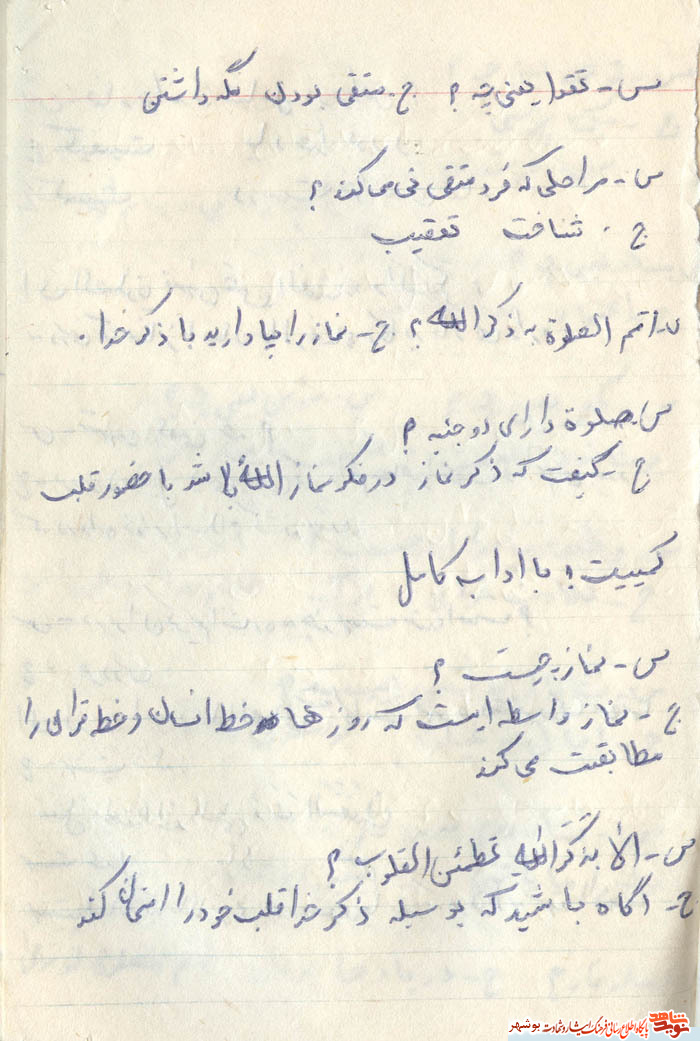 س - تقوا یعنی چه ؟ ج - متقی بودن نگه داشتن
س - مراحلی که فرد متقی می کند ؟
ج . شناخت تعقیب
اتم الصلوة به ذکر الله ؟ ج - نماز را بپا دارید با ذکر خدا .
س - صلوة دارای دو جنبه ؟
ج - کیفیت که ذکر نماز در فکر نماز الله باشد با حضور قلب
کمییت ؛ با اداب کامل
س - نماز چیست ؟
ج - نماز واسطه ایست که روزها خط انسان و خط قران را
مطابقت می کند
س - الا بذکر الله تطمئن القلوب ؟
ج - اگاه باشید که بوسیله ذکر خدا قلب خود را امتحان کند
نوید شاهد
پایگاه اطلاع رسانی فرهنگ ایثار و شهادت بوشهر